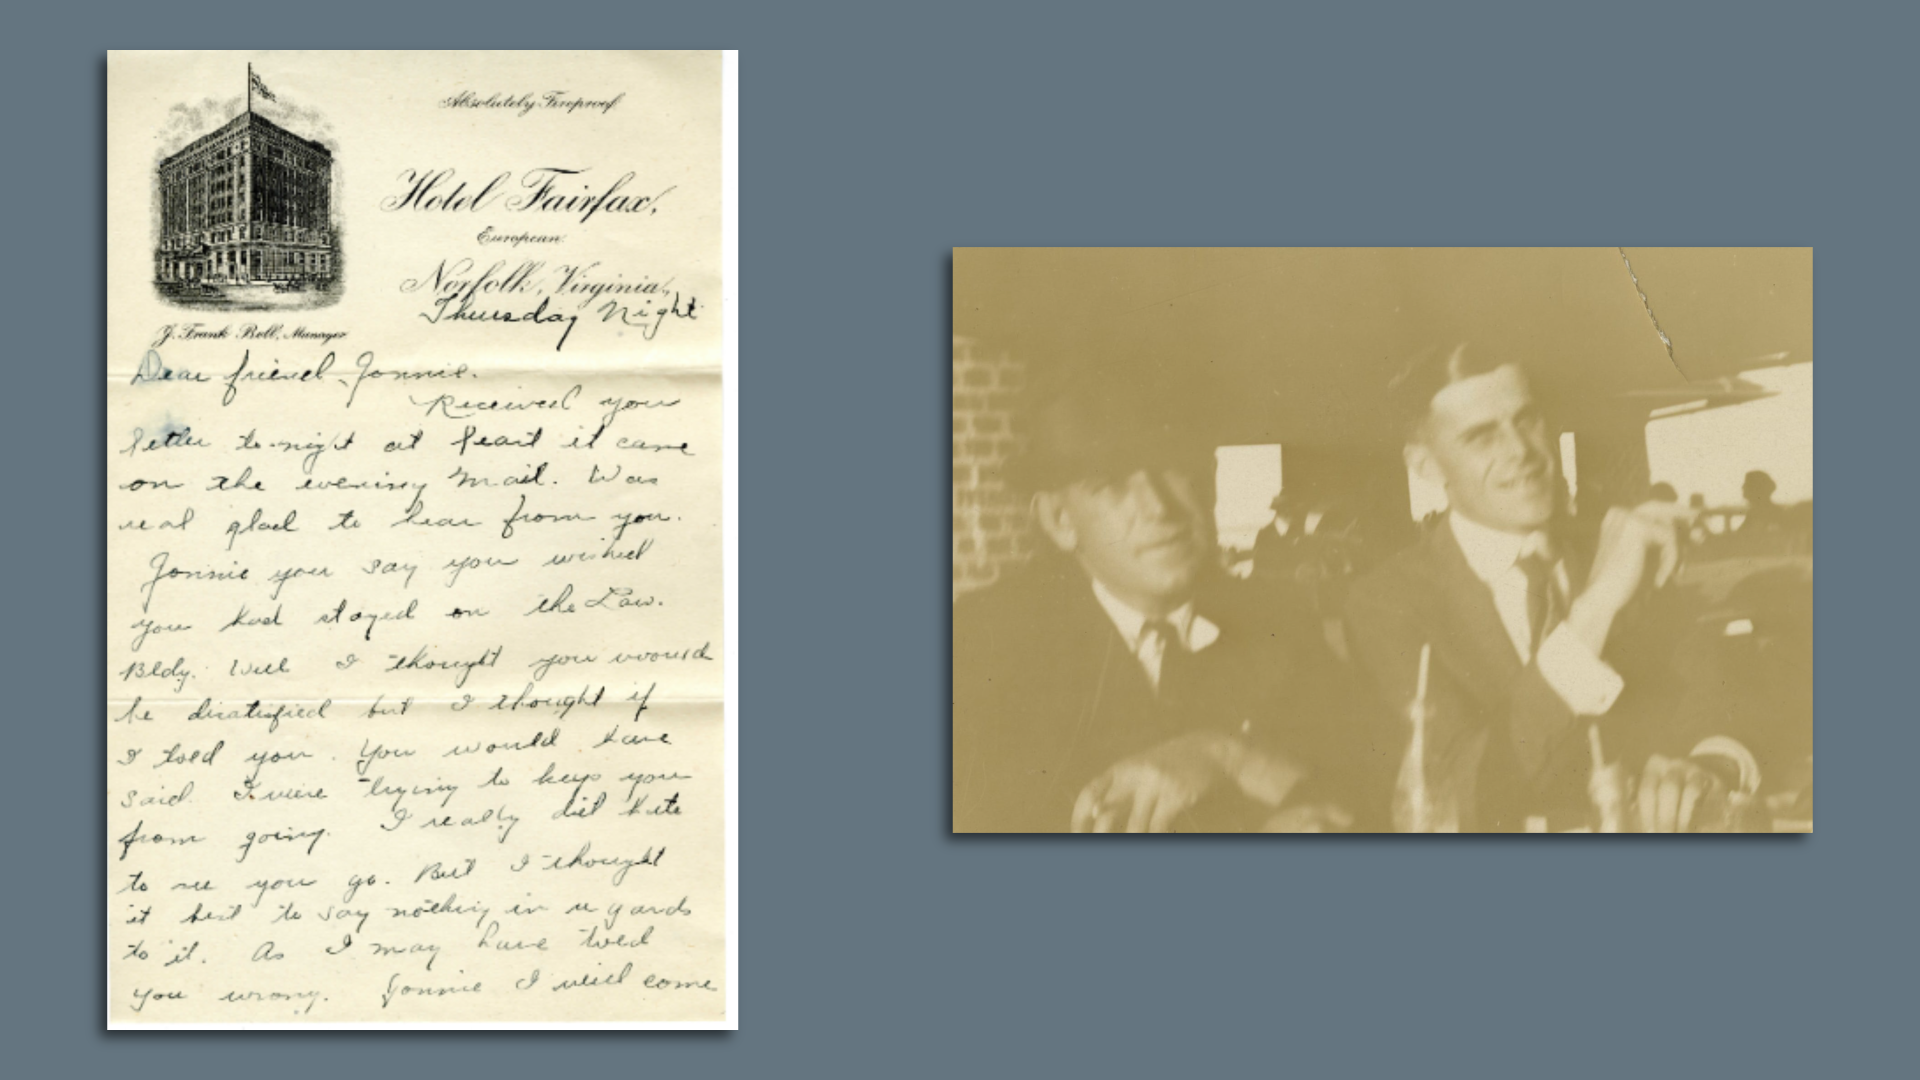 Absolutely Fireproof
Hotel Fairfax,
European.
Norfolk, Virginia,
Thursday Night
J. Frank Bell, Manager
Dear friend, Jonnie.
Received you
letter to-night at least it came
on the evening mail. Was
real glad to hear from you.
Jonnie you say you wished
you had stayed on the Law.
Bldg. Well I thought you would
be disatisfied but I thought if
I toed you. You would have
said I were trying to keep you
from going. I really did hate
to see you go. But I thought
it best to say nothing in regards
to it. As I may have toed
you wrong. Jonnie I will come